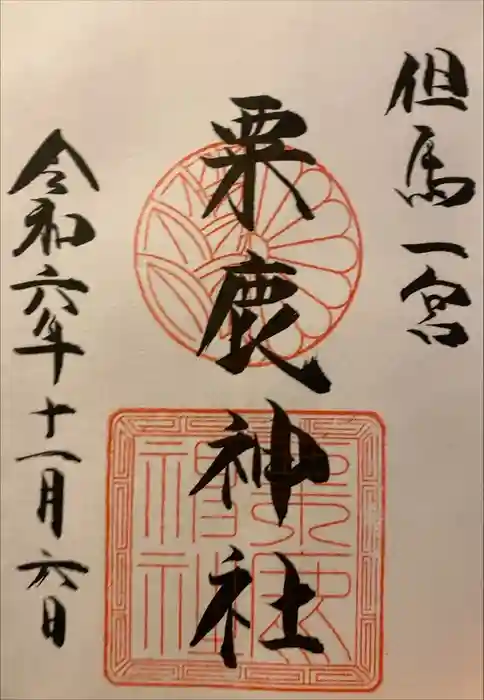 但馬一宮
粟鹿神社
令和六年十一月六日
粟鹿
神社